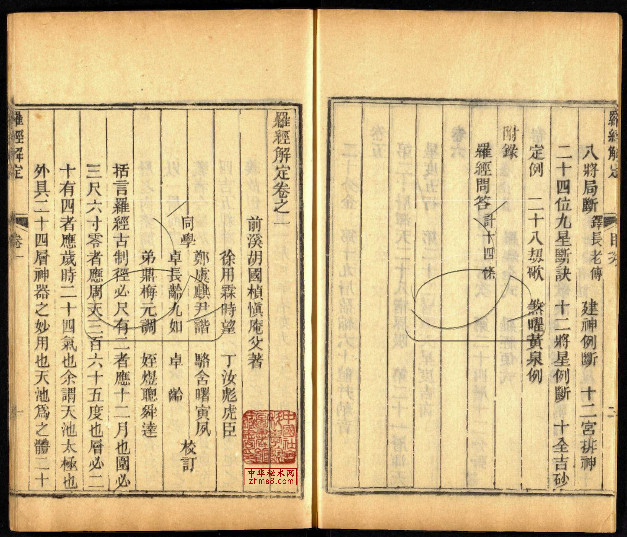 羅經解定 目錄 二
八將局斷 鐸長老傳 建神例斷 十二宮排神
二十四位九星斷訣 十二將星例斷 十全吉砂
定例 二十八刼歌 煞曜黃泉例
附錄
羅經問答 計十四條
羅經解定卷之一
前溪胡國楨慎庵父著
徐用霖時望 丁汝彪虎臣
鄭虞麒尹諧 駱舍曙寅夙
同學 卓長齡九如 卓齡 校訂
弟鼎梅元調 姪煜聰舜達
括言羅經古制徑必尺有二者應十二月也圍必
三尺六寸零者應周天三百六十五度也層必二
十有四者應歲時二十四氣也余謂天池太極也
外具二十四層神器之妙用也天池為之體二十
羅經解定 卷一
中华秘术网
zhms8.com